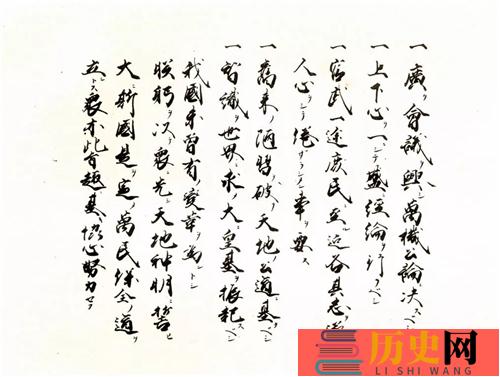 一廣ク會議ヲ興シ萬機公論ニ決スベシ
一上下心ヲ一ニシテ盛ニ經綸ヲ行フベシ
一官武一途庶民ニ至ル迄各其志ヲ遂ケ
人心ヲシテ倦マサラシメン事ヲ要ス
一舊来ノ陋習ヲ破リ天地ノ公道ニ基クベシ
一智識ヲ世界ニ求メ大ニ皇基ヲ振起スベシ
我國未曾有ノ變革ヲ為ントシ
朕躬ヲ以テ衆ニ先シ天地神明ニ誓ヒ
大ニ斯國是ヲ定メ萬民保全ノ道ヲ
立ントス衆亦此旨趣ニ基キ協心努力セヨ
历史网
LI SHI WANG